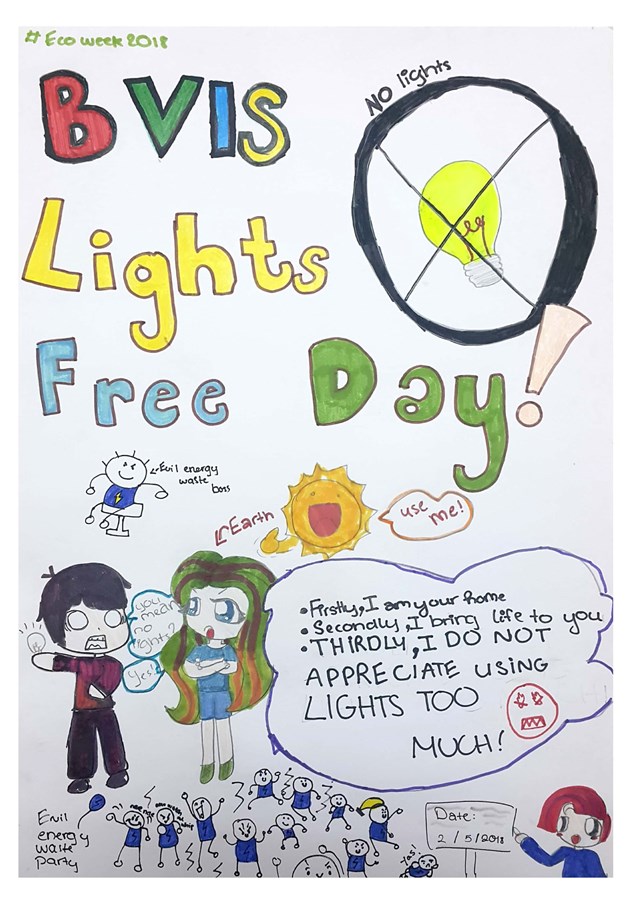 # Eco week 2018
NO lights
BVIS
Lights
Free Day!
Evil energy
waste
boss
Earth
use
me!
you
mean
no
lights?
Yes!
• Firstly, I am your home
• Secondly, I bring life to you
• THIRDLY, I DO NOT
APPRECIATE USING
LIGHTS TOO
MUCH!
Evil
energy
waste
party
Date:
2/5/2018